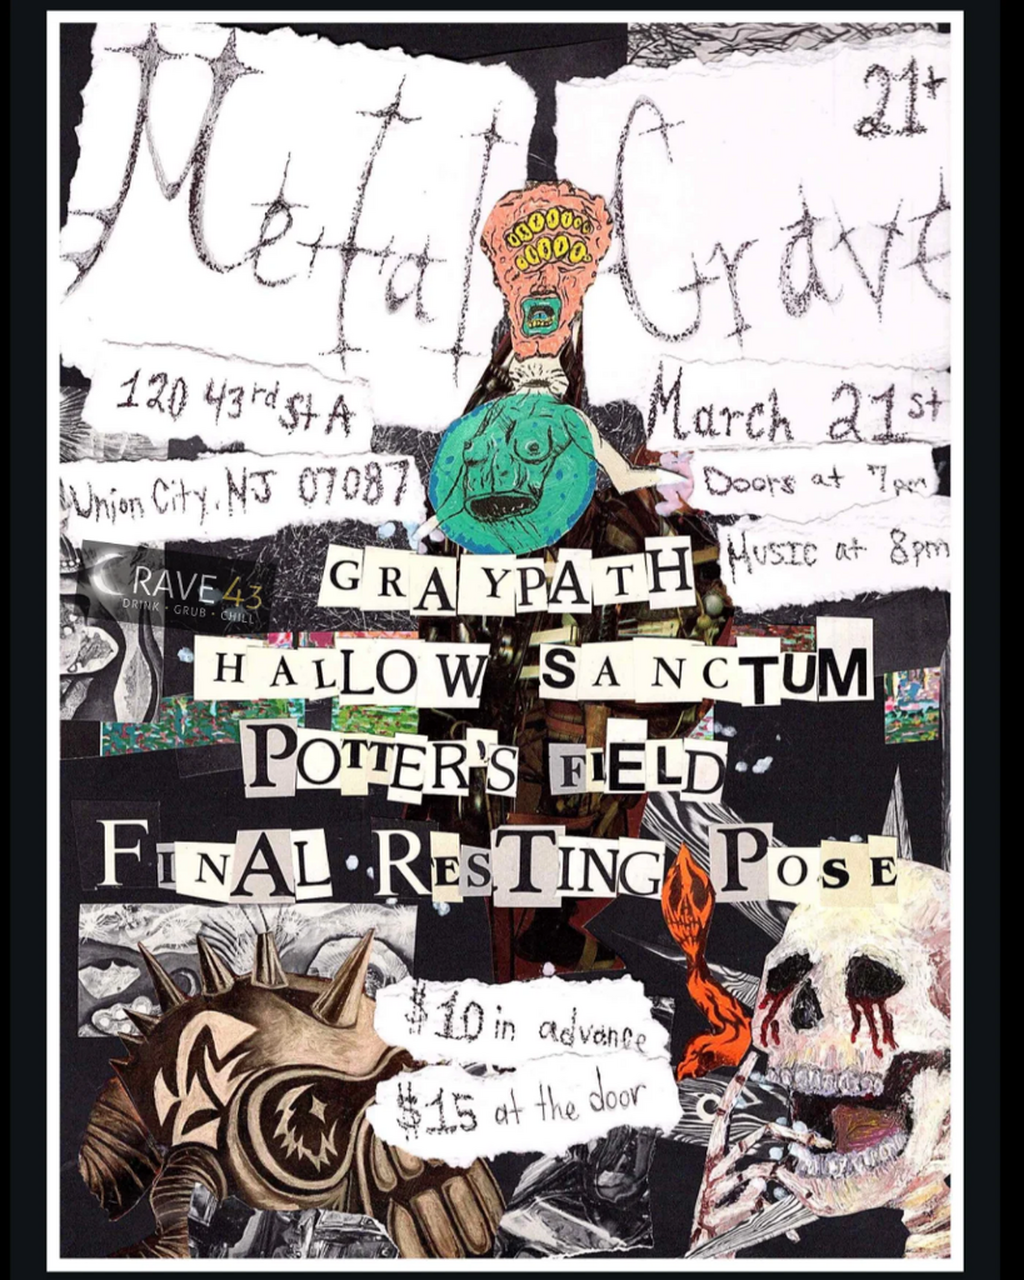 Metal Grave
21+
120 43rd St A
Union City, NJ 07087
March 21st
Doors at 7pm
Music at 8pm
CRAVE 43
DRINK • GRUB • CHILL
GRAYPATH
HALLOW SANCTUM
POTTER'S FIELD
FINAL RESTING POSE
$10 in advance
$15 at the door